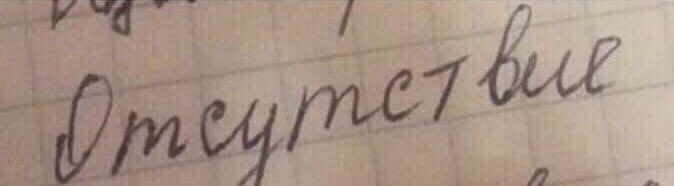 Отсутствие